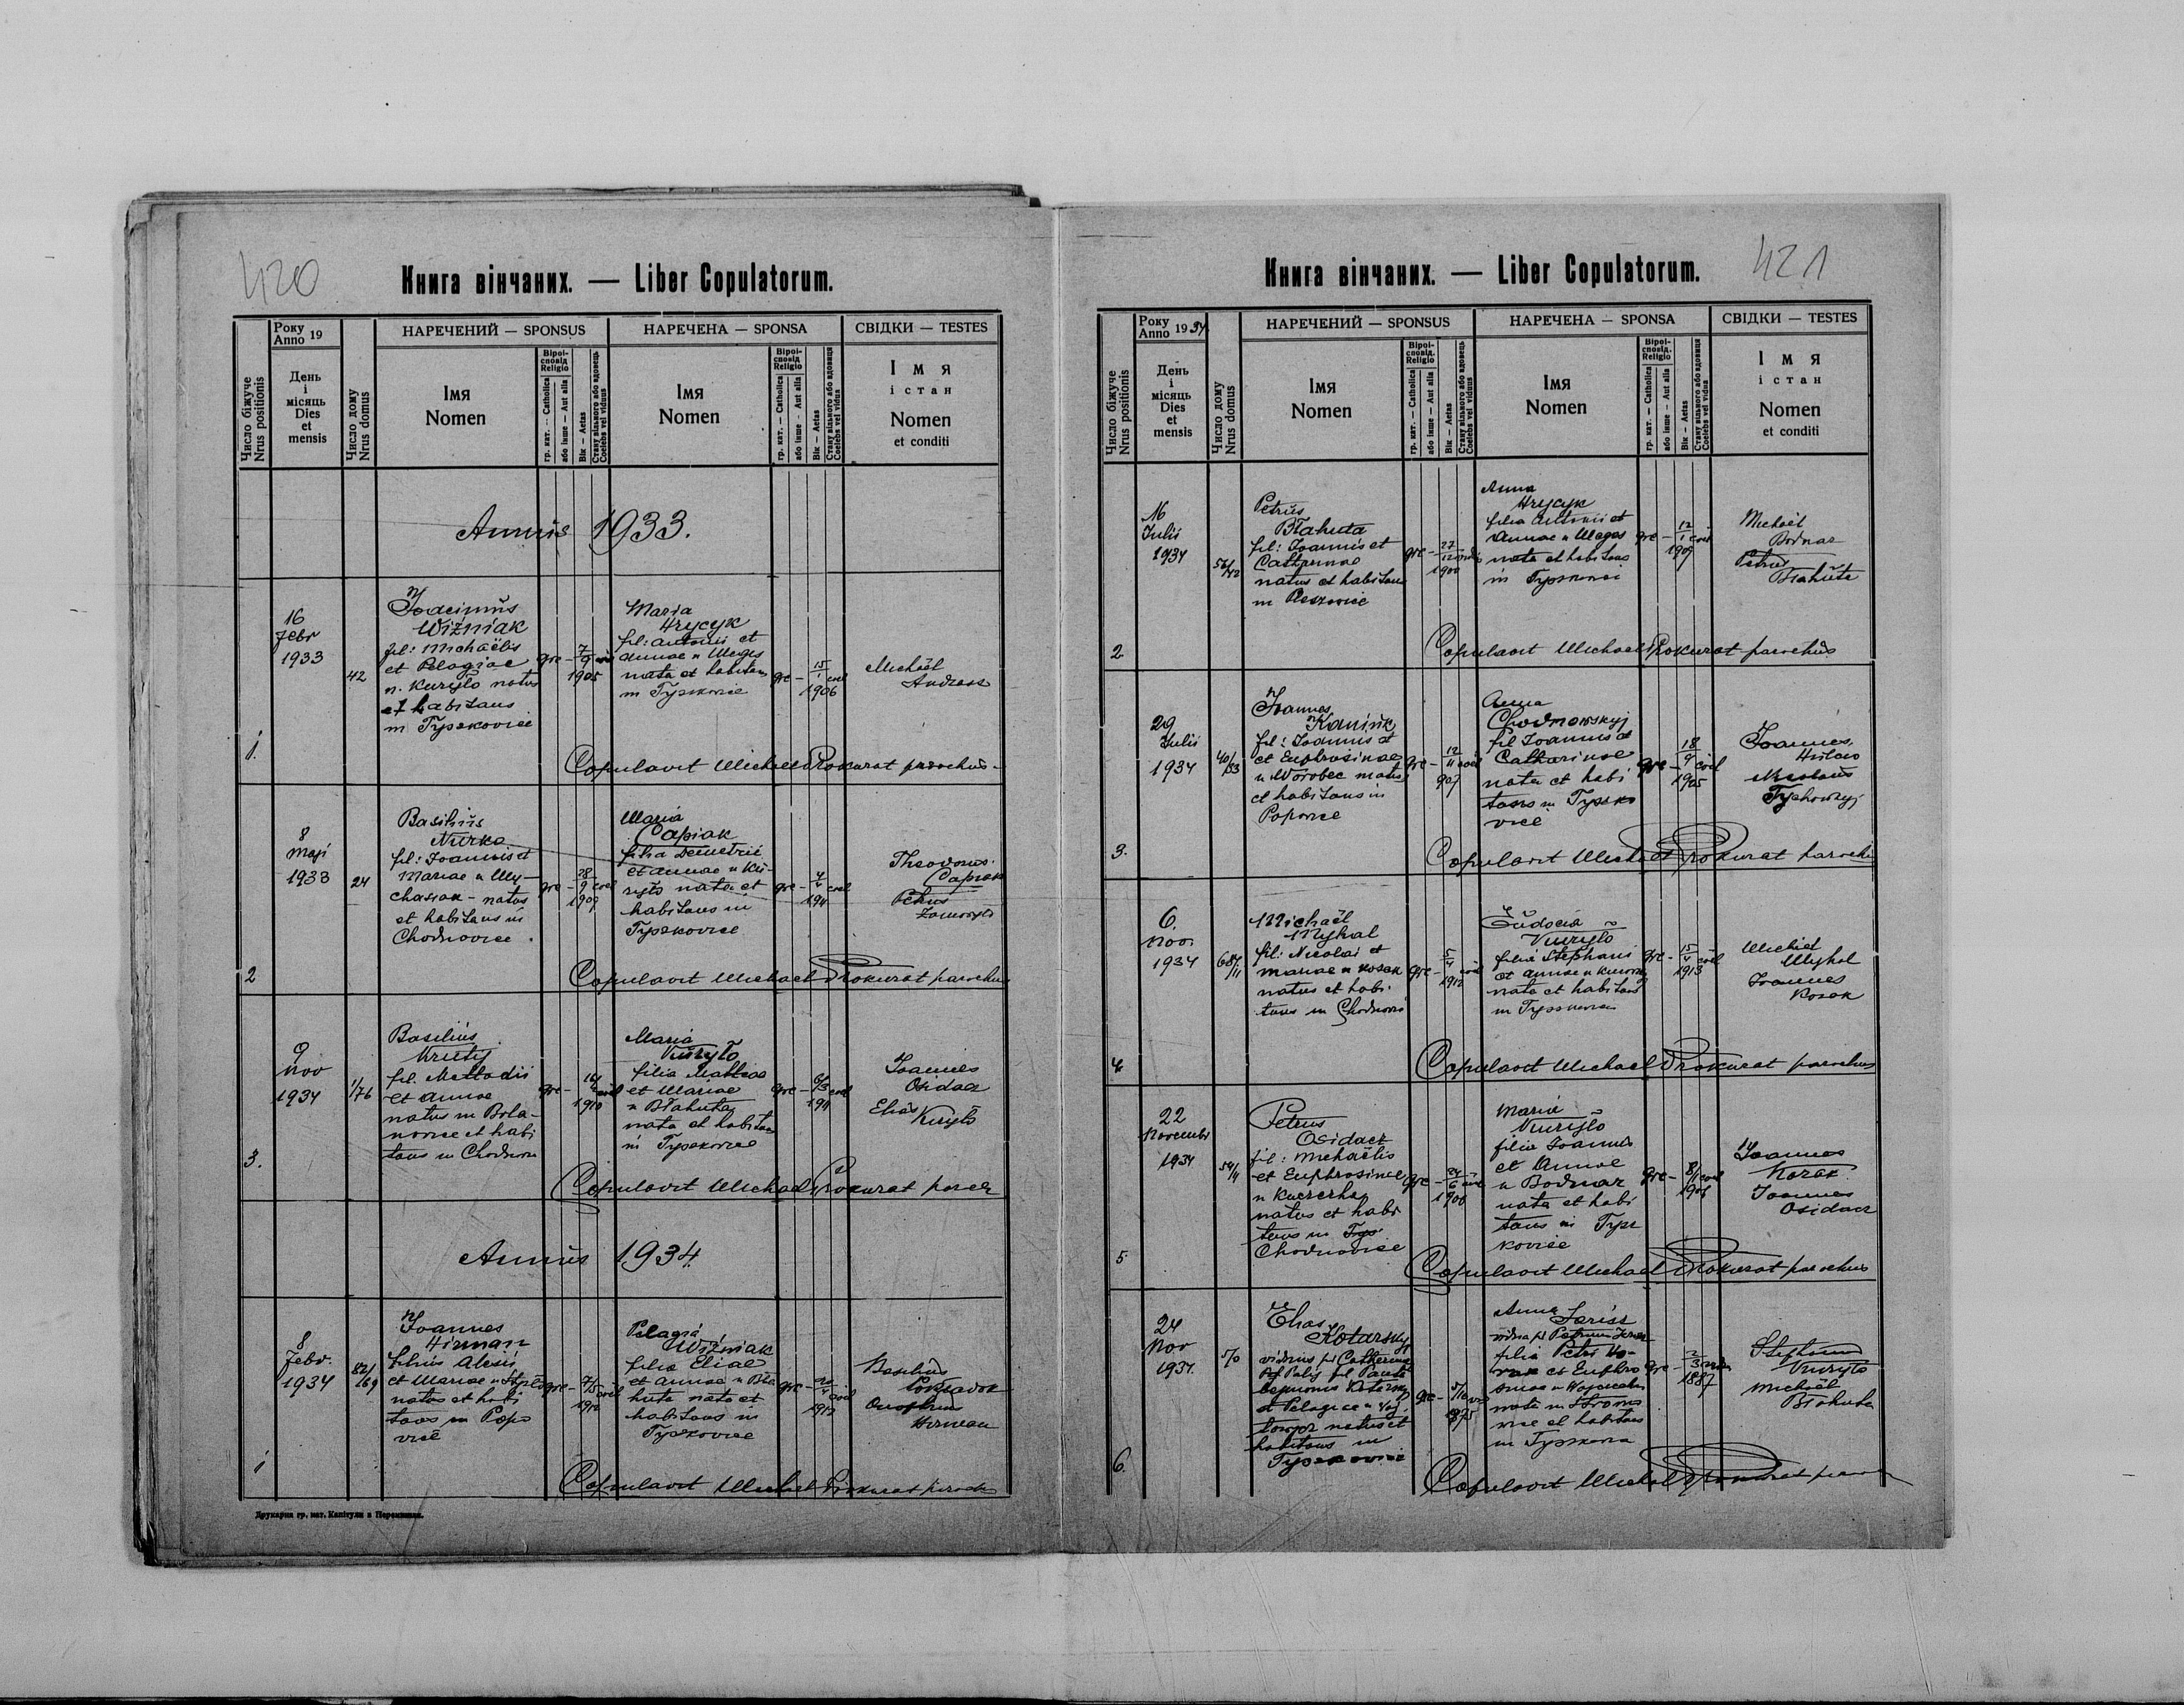 420
Книга вінчаних. — Liber Copulatorum.
Число біжуче
Nrus positionis
Року
Anno 19
День
і
місяць
Dies
et
mensis
Число дому
Nrus domus
НАРЕЧЕНИЙ — SPONSUS
Імя
Nomen
Віроі-
сповід
Religio
гр. кат. — Catholica
або інше — Aut alia
Вік — Aetas
Стану вільного або вдовець
Coelebs vel viduus
НАРЕЧЕНА — SPONSA
Імя
Nomen
Віроі-
сповід
Religio
гр. кат. — Catholica
або інше — Aut alia
Вік — Aetas
Стану вільного або вдовиця
Coelebs vel vidua
СВІДКИ — TESTES
Імя
і стан
Nomen
et conditi
Annus 1933.
1.
16
Febr
1933
42
Joacimus
Wiźniak
fil: Michaëlis
et Pelagiae
n. Kuryło natus
et habitans
in Tyszkovice
gre —
7/9
1905
Maria
Hrycyk
fil: Antonii et
Annae n
nata et habitans
in Tyszkovice
gre —
15/1 coel
1906
Michaël
Andreas
Copulavit Michael Prokurat parochus
2
8
Maji
1933
24
Basilius
Nurka
fil: Joannis et
Mariae n My-
chasiak - natus
et habitans in
Chodnovice
gre —
28/9 coel
1909
Maria
Capiak
filia Demetrii
et Annae n Ku-
ryło nata et
habitans in
Tyszkovice
gre —
4/4 coel
1911
Theodorus
Capiak
Petrus
Copulavit Michael Prokurat parochus
3.
9
Nov
1934
1/76
Basilius
Krutij
fil. Methodii
et Annae
natus in
et habi
tans in Chodnovice
gre —
coel
1910
Maria
Kuryło
filia Mathiae
et Mariae
n Błahuta
nata et habitans
in Tyszkovice
gre —
6/3 coel
1911
Joannes
Osidacz
Elias
Kuryło
Copulavit Michael Prokurat paroch
Annus 1934.
1
8
Febr.
1934
82/169
Joannes
Hirman
filius Alexii
et Mariae n
natus et habi
tans in Popo
vice
gre —
7/5 coel
1912
Pelagia
Wiźniak
filia Eliae
et Annae n Bła
huta nata et
habitans in
Tyszkovice
gre —
coel
Basilius
Onuphrius
Hirman
Copulavit Michael Prokurat parochus
Друкарня гр. кат. Капітули в Перемишли.
421
Книга вінчаних. — Liber Copulatorum.
Число біжуче
Nrus positionis
Року
Anno 1934
День
і
місяць
Dies
et
mensis
Число дому
Nrus domus
НАРЕЧЕНИЙ — SPONSUS
Імя
Nomen
Віроі-
сповід.
Religio
гр. кат. — Catholica
або інше — Aut alia
Вік — Aetas
Стану вільного або вдовець
Coelebs vel viduus
НАРЕЧЕНА — SPONSA
Імя
Nomen
Віроі-
сповід.
Religio
гр. кат. — Catholica
або інше — Aut alia
Вік — Aetas
Стану вільного або вдовиця
Coelebs vel vidua
СВІДКИ — TESTES
Імя
і стан
Nomen
et conditi
2
16
Julii
1934
56/42
Petrus
Błahuta
fil: Joannis et
Catharinae
natus et habitans
in
gre —
27/12
1900
Anna
Hrycyk
filia Antonii et
Annae n
nata et habitans
in Tyszkovice
gre —
12/1 coel
1909
Michaël
Bodnar
Petrus
Błahuta
Copulavit Michael Prokurat parochus
3.
29
Julii
1934
40/53
Joannes
Kaniuk
fil: Joannis et
et Euphrosinae
n Worobec natus
et habitans in
Popovice
gre —
12/11 coel
907
Anna
Chodnowskyj
fil Joannis et
Catharinae
nata et habi
tans in Tyszko
vice
gre —
18/9 coel
1905
Joannes
Nicolaus
Tychowskyj
Copulavit Michael Prokurat parochus
4.
6.
Nov.
1934
68/11
Michaël
Myhal
fil: Nicolai et
Mariae n Kosak
natus et habi-
tans in Chodnovice
gre —
5/4 coel
1912
Eudocia
Kuryło
filia Stephani
et Annae n
nata et habitans
in Tyszkovice
gre —
15/4 coel
1913
Michael
Myhal
Joannes
Kosak
Copulavit Michael Prokurat parochus
5.
22
Novembr
1934
54/11
Petrus
Osidacz
fil: Michaëlis
et Euphrosinae
n Kuczerha
natus et habi
tans in Tys
Chodnovice
gre —
24/6 coel
1906
Maria
Kuryło
filia Joannis
et Annae
n Bodnar
nata et habi
tans in Tysz
kovice
gre —
8/1 coel
1906
Joannes
Kozak
Joannes
Osidacz
Copulavit Michael Prokurat parochus
6.
24
Nov
1934.
50
Elias
Kotarskyj
viduus p/ Catharinam
Kotarskyj
et Pelagiae n
natus et
habitans in
Tyszkovice
gre —
5/10
1875
Anna
vidua p/ Petrum
filia Petri
et Euphro
sinae n
nata in
et habitans
in Tyszkovice
gre —
2/3
1887
Stephanus
Kuryło
Michaël
Błahuta
Copulavit Michael Prokurat paroch